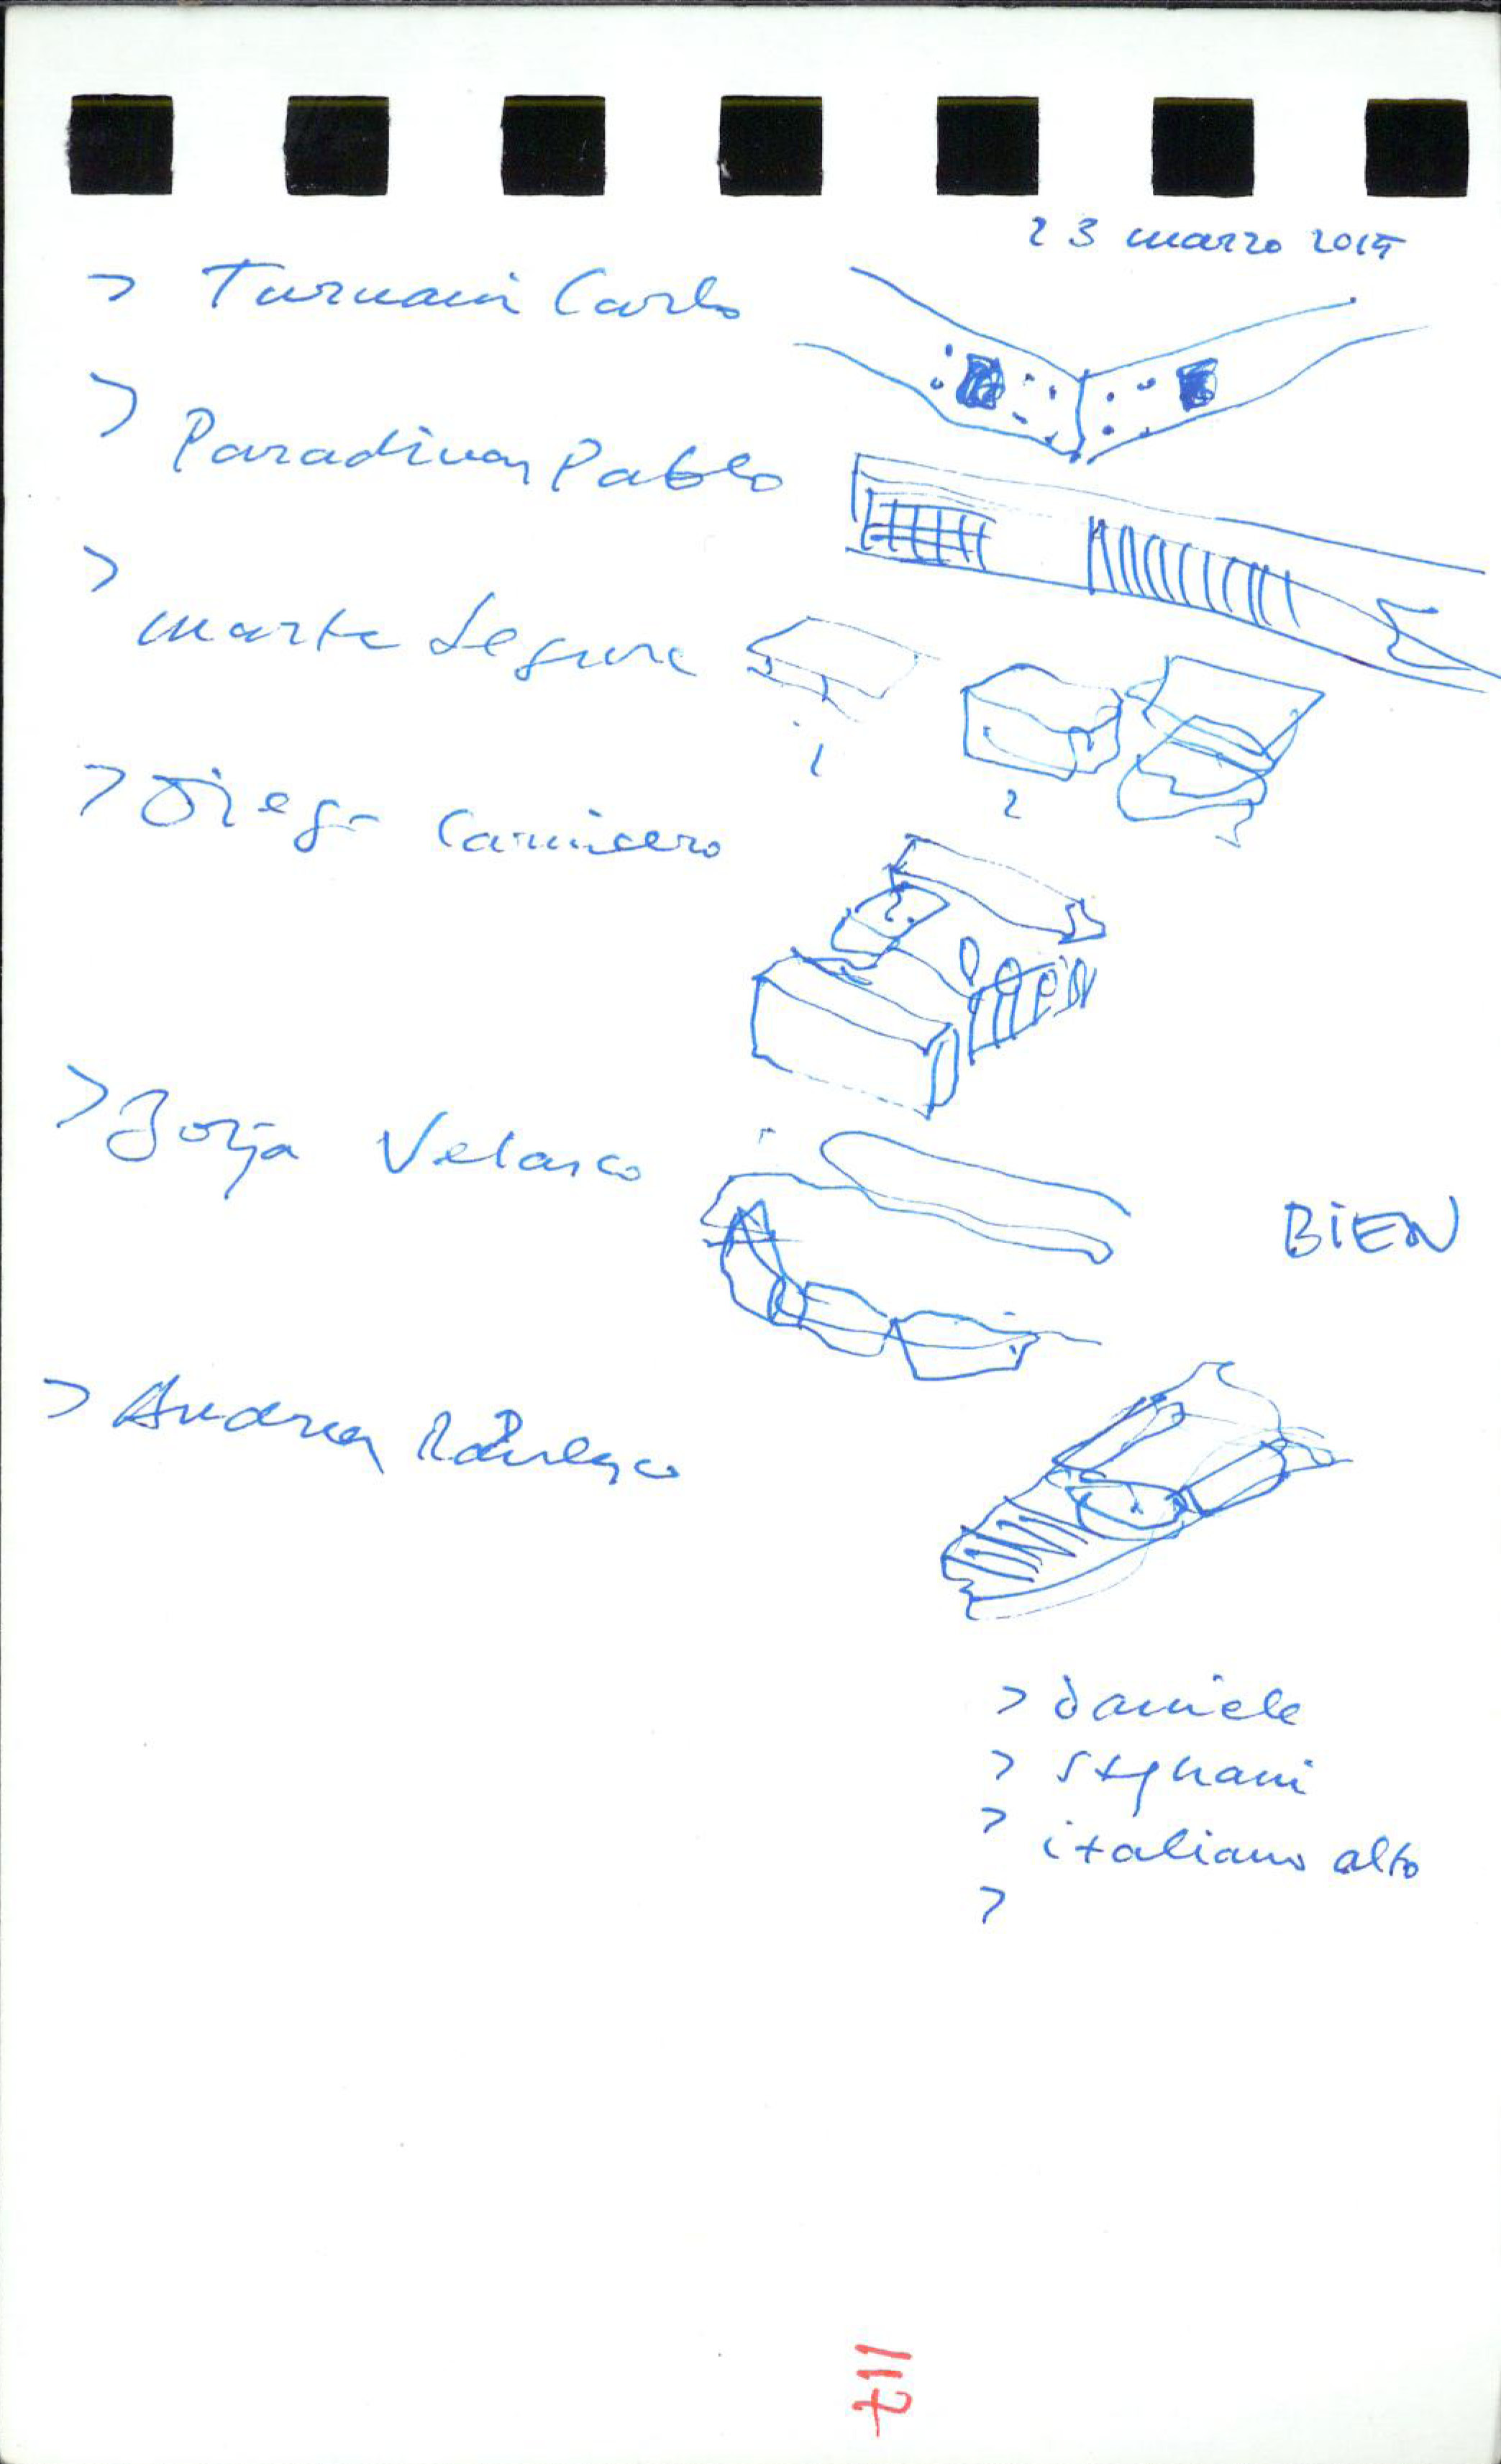 23 marzo 2015
> Turnain Carlo
> Paradinas Pablo
> Marta Segura
1
2
> Diego Carnicero
> Borja Velasco
BIEN
> Andrea
> daniele
> italiano alto
>
117